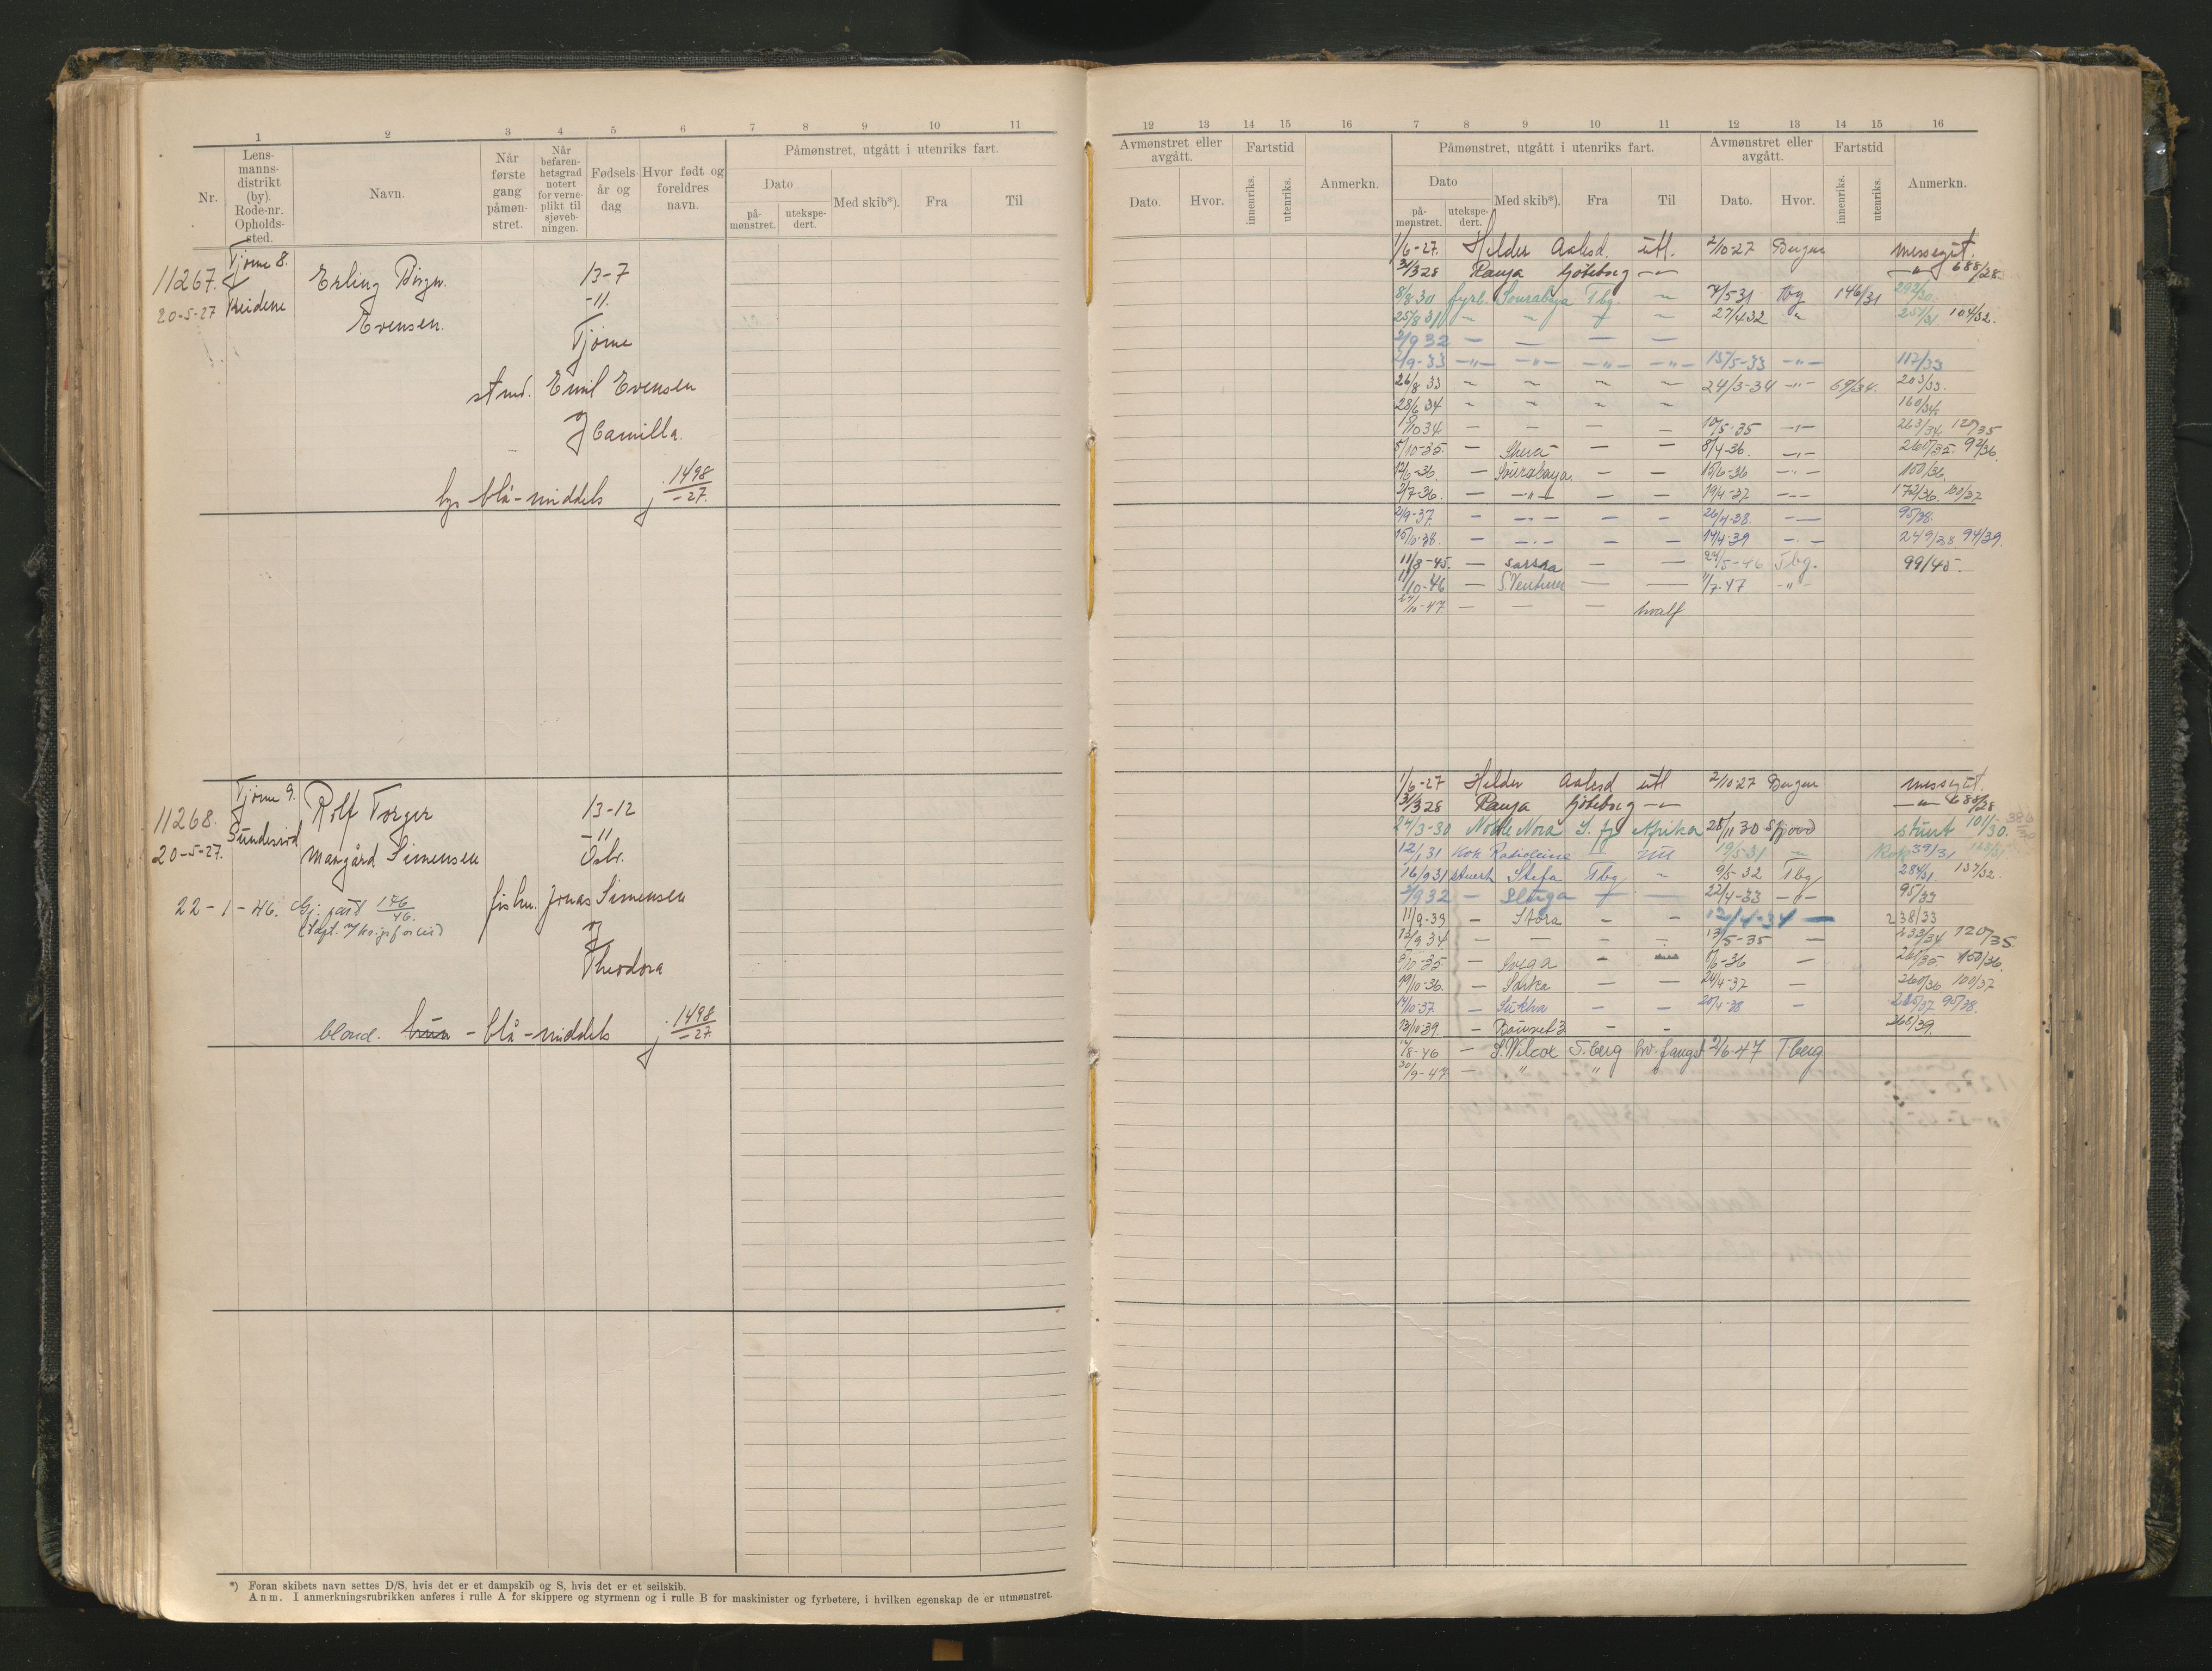 1 2 3 4 5 6 7 8 9 10 11
Nr.
Lens-
manns-
distrikt
(by).
Rode-nr.
Opholds-
sted.
Navn.
Når
første
gang
påmøn-
stret.
Når
befaren-
hetsgrad
notert
for verne-
plikt til
sjøveb-
ningen.
Fødsels-
år og
dag
Hvor født og
foreldres
navn.
Påmønstret, utgått i utenriks fart.
Dato
på-
mønstret.
utekspe-
dert.
Med skib*).
Fra
Til
Tjøme 8.
11267. Erling Birger 13-7
20-5-27 Evensen. -11.
Tjøme
Emil Evensen
og
Camilla.
lys blå-middels j. 1498/-27.
Tjøme 9.
11268. Rolf Torger 13-12
Sundesvod -11
20-5-27. Margård Simensen Osbr.
22-1-46. 
fiskm. Jonas Simensen
og
Theodora
blond. brun - blå - middels j. 1498/-27
*) Foran skibets navn settes D/S, hvis det er et dampskib og S, hvis det er et seilskib.
Anm. I anmerkningsrubrikken anføres i rulle A for skippere og styrmenn og i rulle B for maskinister og fyrbøtere, i hvilken egenskap de er utmønstret.
12 13 14 15 16 7 8 9 10 11 12 13 14 15 16
Avmønstret eller
avgått.
Dato.
Hvor.
Fartstid
innenriks.
utenriks.
Anmerkn.
Påmønstret, utgått i utenriks fart.
Dato
på-
mønstret.
utekspe-
dert.
Med skib*).
Fra
Til
Avmønstret eller
avgått.
Dato.
Hvor.
Fartstid
innenriks.
utenriks.
Anmerkn.
1/6-27. Helder Aalesd. utl. 2/10-27 Bergen messegt.
31/3 28 Ranja Göteborg -"- -"- 688/28.
8/8 30 fyrb. Sourabaya Tbg. ~ 7/5 31 Tbg 146/31 292/30.
25/8 31 ~ ~ ~ 27/4 32 " 251/31 104/32.
2/9 32 - - - -
2/9-33 -"- -"- -"- -"- 15/5-33 -"- 117/33
26/8 33 ~ ~ ~ ~ 24/3-34 -"- 69/34. 203/33.
28/6 34 ~ ~ ~ ~ 160/34.
1/10 34 - - - - 10/5-35 -"- 263/34. 120/35
5/10-35. - - - 8/4-36. -"- 260/35. 92/36.
12/6-36. - Sourabaya. - - 15/6-36 -"- 150/36.
2/7-36. - -"- - - 19/4-37 -"- 172/36. 100/37
2/9-37. - -"- - - 26/4-38. -"- 95/38.
15/10-38. - -"- - - 14/4-39 -"- 249/38 94/39.
11/8-45. - Sarsna - - 24/5-46 Tbg. 99/45-
11/10-46 - S. Venturer - - 11/7-47 -"-
27/10-47 - - - hvalf
1/6-27 Helder Aalesd utl 2/10-27 Bergen messegt.
31/3 28 Ranja Göteborg -"- -"- 688/28
24/3-30 Noble Nora S. fj Afrika 28/11 30 Sfjord stuert 101/30. 386/30
12/1 31 Kok Radioleine - utl 19/5-31 ~ Kok 39/31
16/9 31 stuert Stefa Tbg ~ 9/5-32 Tbg 284/31. 137/32.
2/9 32 - - 22/4-33 -"- 95/33
11/9-33 - Stora - - 12/4-34 - 238/33
12/9 34 - - - - 13/5-35 - 233/34. 120/35
5/10-35 - Svega - 8/6-36 - 261/35. 150/36.
19/10-36. - Sarka - - 24/4-37 - 260/36. 100/37
14/10-37 - Sukha - - 20/4-38 - 285/37 95/38.
13/10-39. - Bouvet 3 - - 268/39.
12/8-46 - S. Wilcox T.berg hv. fangst 2/6-47 T.berg
30/9-47 - " "